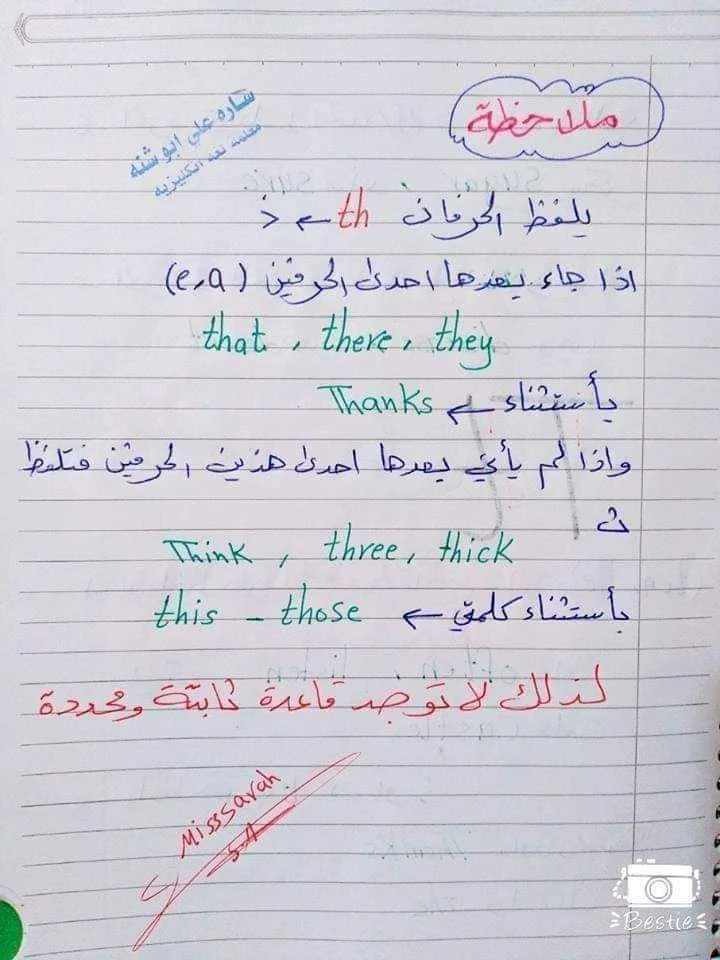 ملاحظة
ساره علي ابو شنه
معلمة لغة انكليزيه
يلفظ الحرفان th ← ذ
اذا جاء بعدها احدى الحرفين (e,a)
that , there , they
بأستثناء ← Thanks
واذا لم يأتي بعدها احدى هذين الحرفين فتلفظ
ث
Think , three , thick
بأستثناء كلمتي ← this - those
لذلك لا توجد قاعدة ثابتة ومحددة
Misssarah
Bestie